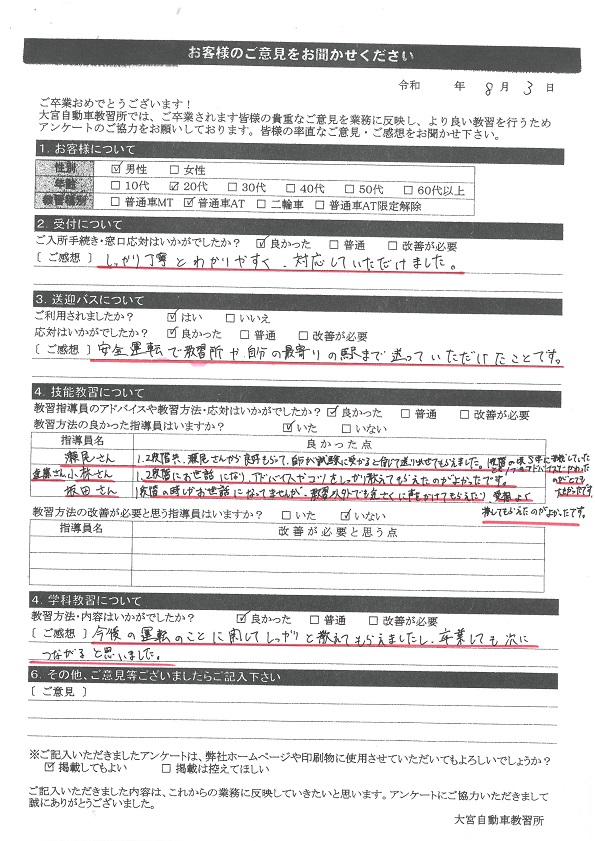 お客様のご意見をお聞かせください
令和 年 8 月 3 日
ご卒業おめでとうございます！
大宮自動車教習所では、ご卒業されます皆様の貴重なご意見を業務に反映し、より良い教習を行うため
アンケートのご協力をお願いしております。皆様の率直なご意見・ご感想をお聞かせ下さい。
1. お客様について
性別 ☑男性 □女性
年齢 □10代 ☑20代 □30代 □40代 □50代 □60代以上
教習種別 □普通車MT ☑普通車AT □二輪車 □普通車AT限定解除
2. 受付について
ご入所手続き・窓口応対はいかがでしたか？ ☑良かった □普通 □改善が必要
［ご感想］しっかり丁寧とわかりやすく、対応していただけました。
3. 送迎バスについて
ご利用されましたか？ ☑はい □いいえ
応対はいかがでしたか？ ☑良かった □普通 □改善が必要
［ご感想］安全運転で教習所や自分の最寄りの駅まで送っていただけたことです。
4. 技能教習について
教習指導員のアドバイスや教習方法・応対はいかがでしたか？ ☑良かった □普通 □改善が必要
教習方法の良かった指導員はいますか？ ☑いた □いない
指導員名 良かった点
さん 1、2段階共、
小林さん 1、2段階にお世話になり、アドバイスやコツをしっかり教えてもらえたのがよかったです。
坂田さん 1段階の時しかお世話になってませんが、教習以外でも気さくに声をかけてもらえたり
接してもらえたのがよかったです。
教習方法の改善が必要と思う指導員はいますか？ □いた ☑いない
指導員名 改善が必要と思う点
4. 学科教習について
教習方法・内容はいかがでしたか？ ☑良かった □普通 □改善が必要
［ご感想］今後の運転のことに関してしっかりと教えてもらえましたし、卒業しても次に
つながると思いました。
6. その他、ご意見等ございましたらご記入下さい
［ご意見］
※ご記入いただきましたアンケートは、弊社ホームページや印刷物に使用させていただいてもよろしいでしょうか？
☑掲載してもよい □掲載は控えてほしい
ご記入いただきました内容は、これからの業務に反映していきたいと思います。アンケートにご協力いただきまして
誠にありがとうございました。
大宮自動車教習所